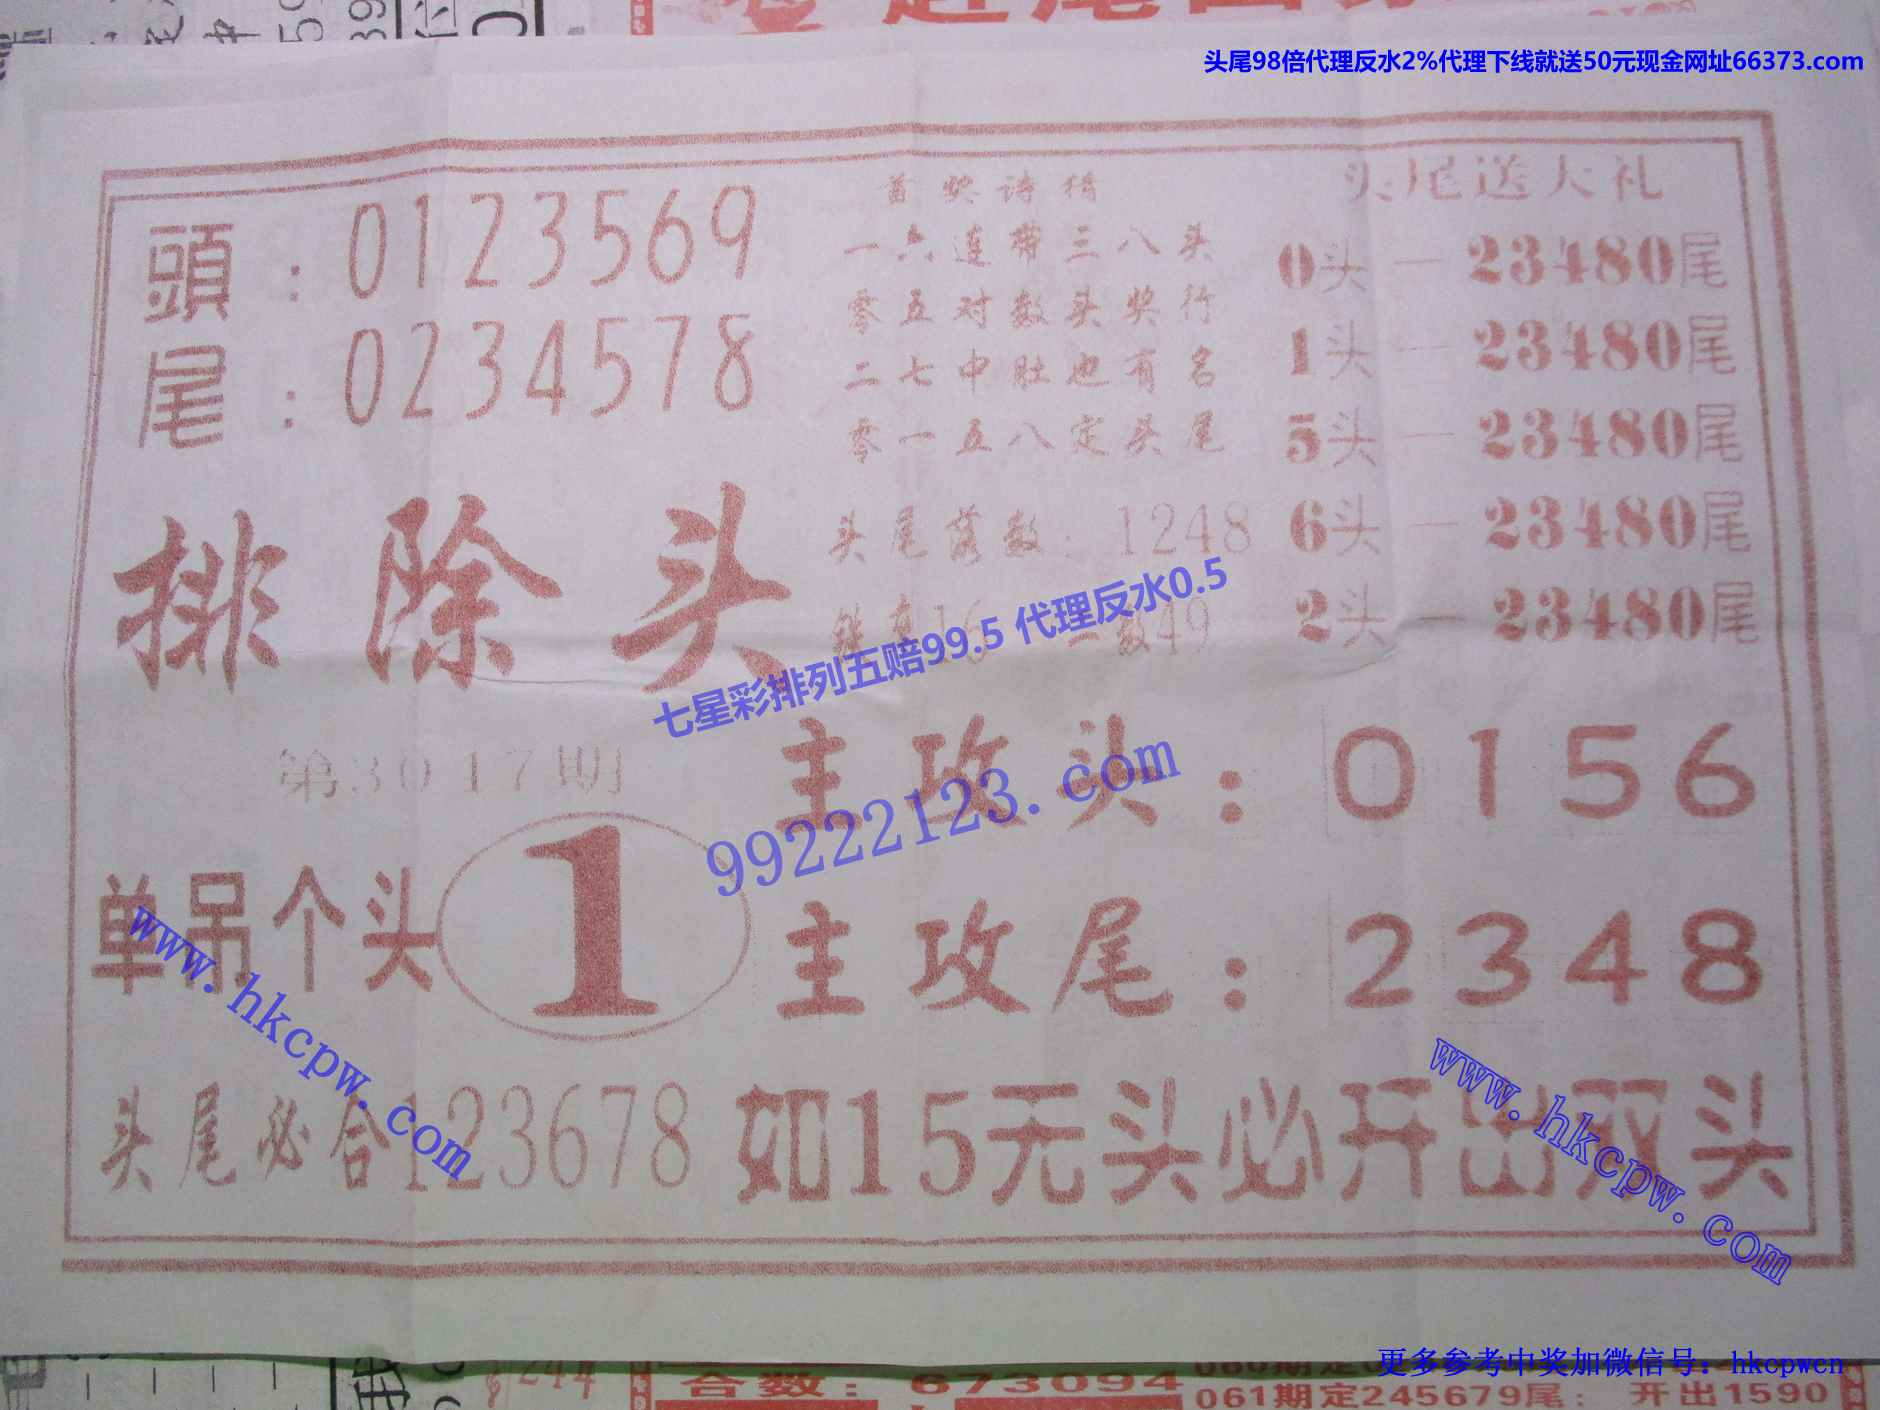 头尾98倍代理反水2%代理下线就送50元现金网址66373.com
頭：0123569
尾：0234578
首奖诗猜
一六连带三八头
零五对数头奖行
二七中肚也有名
零一五八定头尾
头尾落数：1248
16 二数49
头尾送大礼
0头一23480尾
1头一23480尾
5头一23480尾
6头一23480尾
2头一23480尾
排除头
七星彩排列五赔99.5 代理反水0.5
99222123.com
第3017期
单吊个头 1
主攻头：0156
主攻尾：2348
www.hkcpw.com
www.hkcpw.com
头尾必合123678
如15无头必开出双头
更多参考中奖加微信号：hkcpwcn
合数：673094
061期定245679尾：开出1590